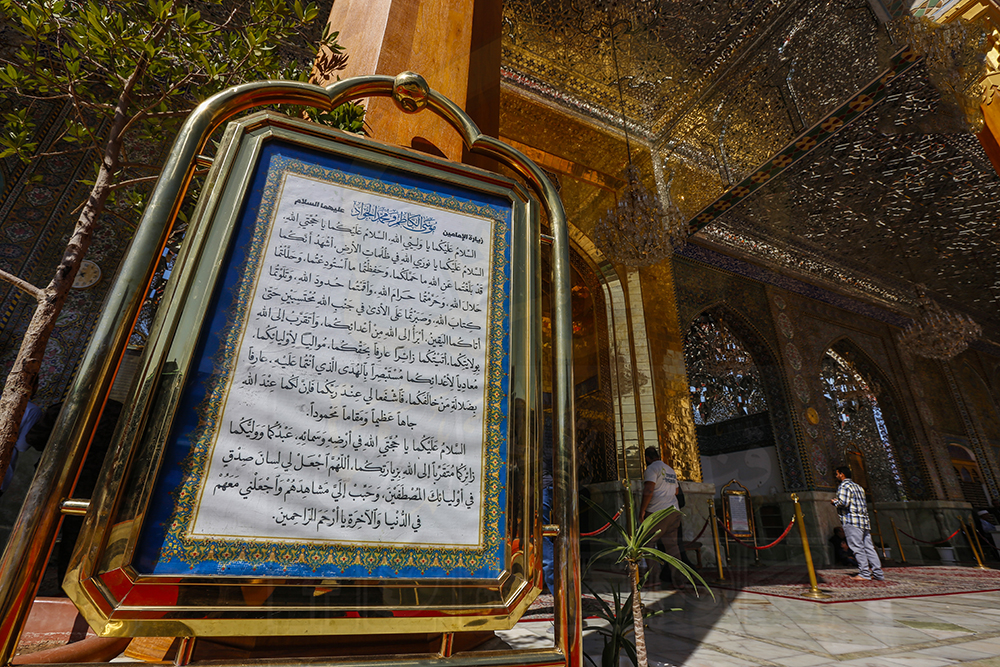 زيارة الإمامين موسى الكاظم ومحمد الجواد عليهما السلام
السلام عليكما يا وليي الله، السلام عليكما يا حجتي الله،
السلام عليكما يا نوري الله في ظلمات الأرض، أشهد أنكما
قد بلغتما عن الله ما حملكما، وحفظتما ما استودعتما، وحللتما
حلال الله، وحرمتما حرام الله، وأقمتما حدود الله، وتلوتما
كتاب الله، وصبرتما على الأذى في جنب الله محتسبين حتى
أتاكما اليقين، أبرأ إلى الله من أعدائكما، وأتقرب إلى الله
بولايتكما، أتيتكما زائراً عارفاً بحقكما، موالياً لأوليائكما،
معادياً لأعدائكما مستبصراً بالهدى الذي أنتما عليه، عارفاً
بضلالة من خالفكما، فاشفعا لي عند ربكما فإن لكما عند الله
جاهاً عظيماً ومقاماً محموداً.
السلام عليكما يا حجتي الله في أرضه وسمائه، عبدكما ووليكما
زائركما متقرباً إلى الله بزيارتكما، اللهم اجعل لي لسان صدق
في أوليائك المصطفين، وحبب إلي مشاهدهم واجعلني معهم
في الدنيا والآخرة يا أرحم الراحمين.